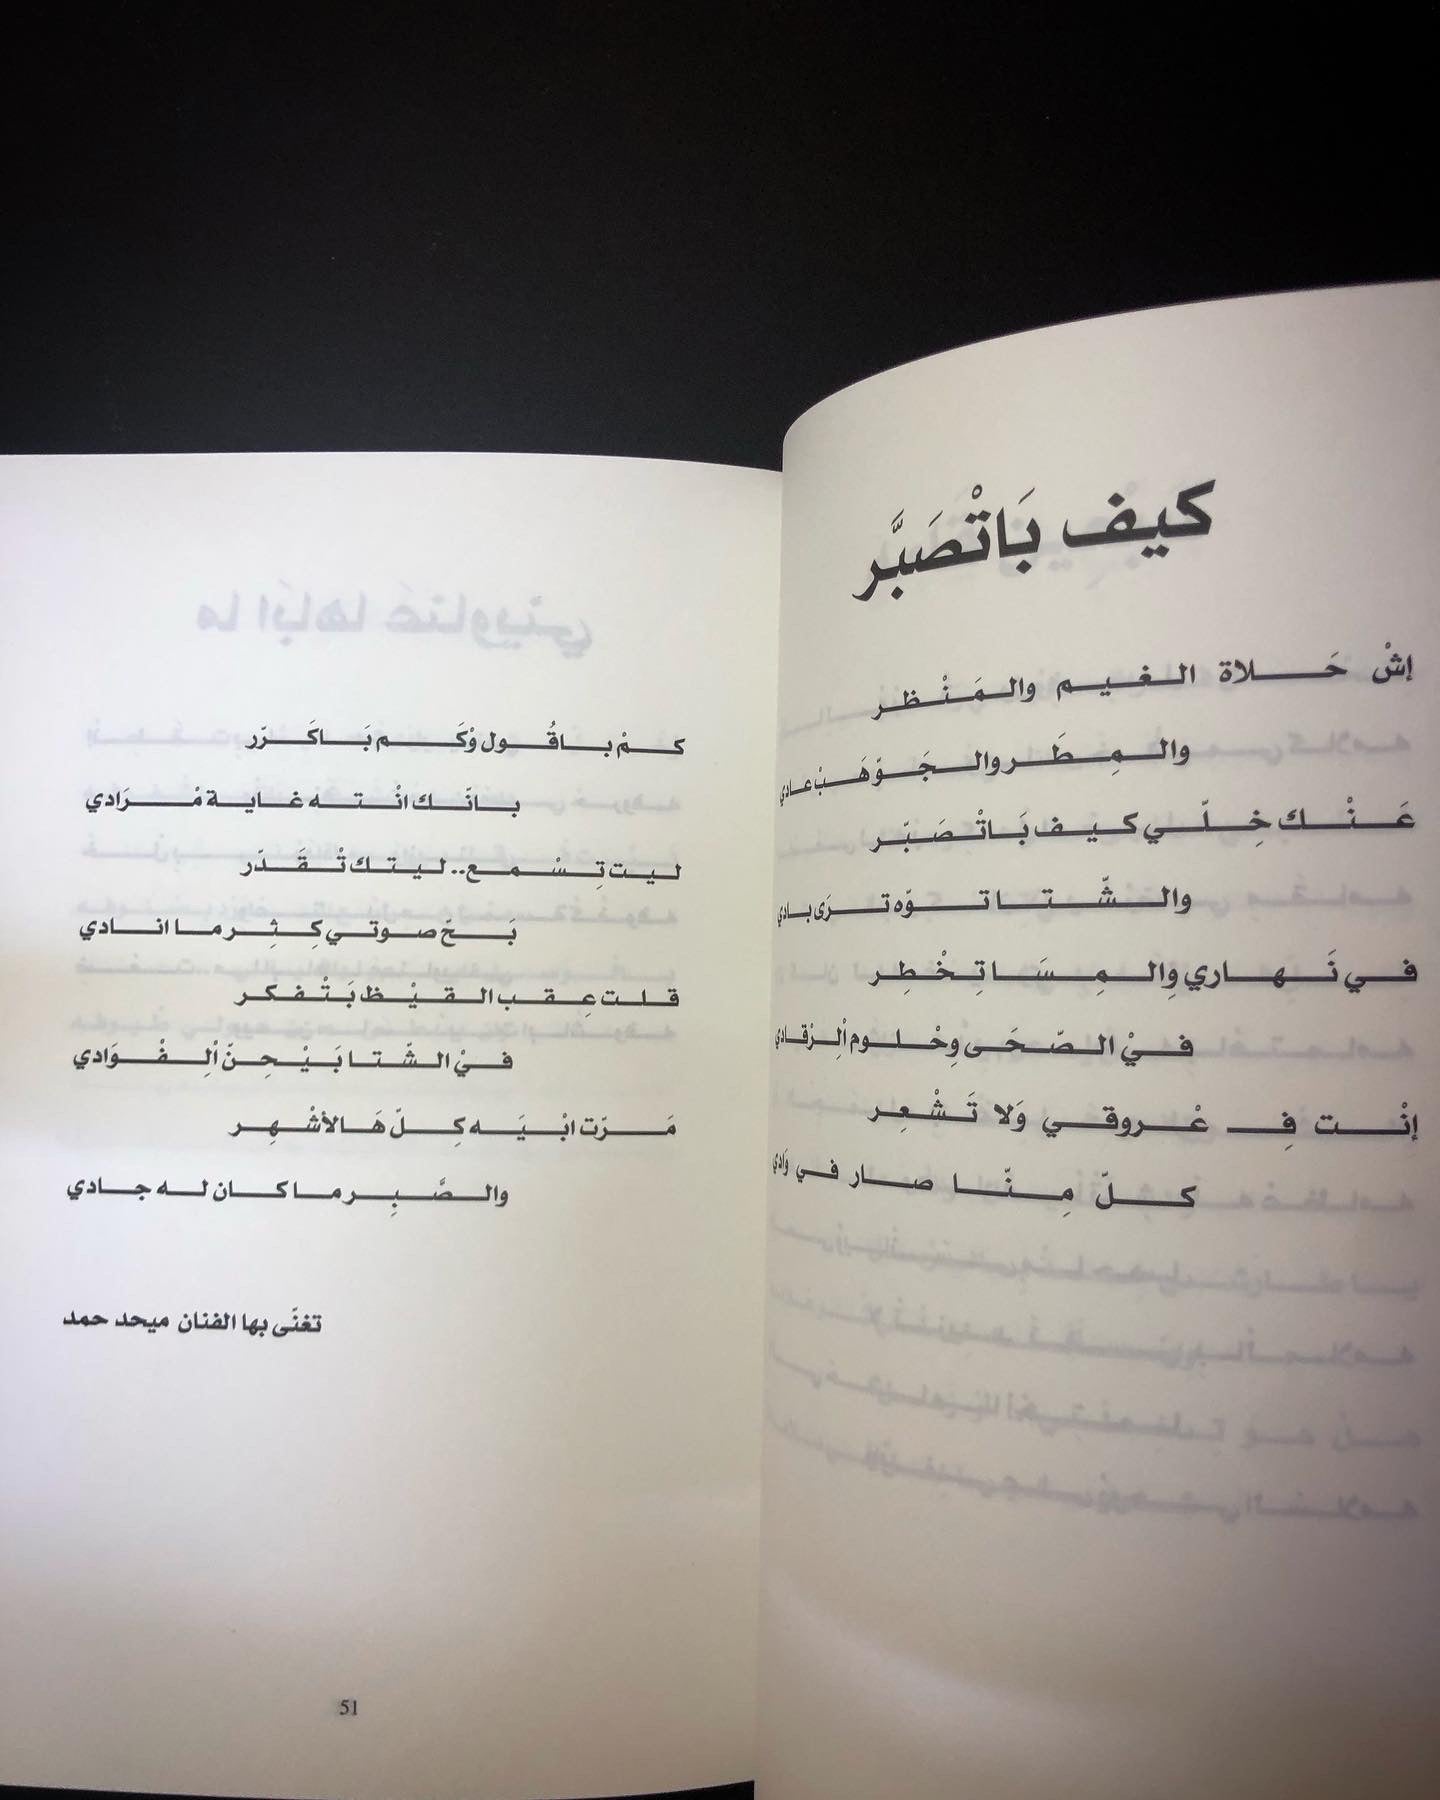 كيف بَاتْصَبَّر
إشْ حَلاة الغيم والمَنْظر
والمِطَر والجَوّ هَبْ عادي
عَنْك خِلّي كيف بَاتْصَبّر
والشّتا توّه ترَى بادي
في نَهاري والمِسَا تِخْطِر
فيْ الصّحَى وِحْلوم اْلِرْقادي
إنْت فِ عْروقي وَلا تَشْعِر
كلّ مِنّا صار في وَادي
كمْ باقُول وْكَم بَاكَرّر
بانّك انْته غاية مْرَادي
ليت تِسْمع.. ليتك تْقَدّر
بَحّ صوتي كِثِر ما انادي
قلت عِقب القيْظ بَتْفكر
فيْ الشّتا بَيْحِنّ اْلِفْوَادي
مَرّت ابْيَه كِلّ هَالأشْهِر
والصَّبِر ما كان له جادي
تغنّى بها الفنان ميحد حمد
51